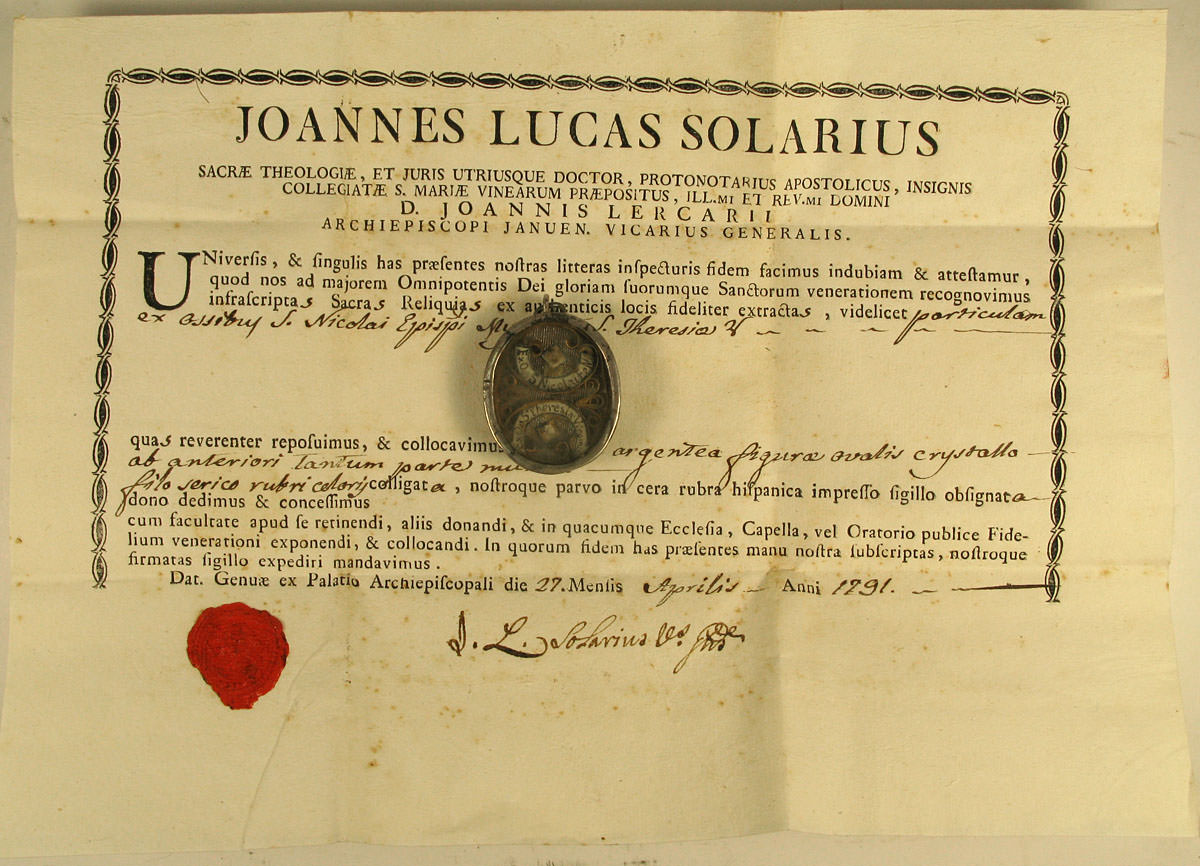 JOANNES LUCAS SOLARIUS
SACRÆ THEOLOGIÆ, ET JURIS UTRIUSQUE DOCTOR, PROTONOTARIUS APOSTOLICUS, INSIGNIS
COLLEGIATÆ S. MARIÆ VINEARUM PRÆPOSITUS, ILL.MI ET REV.MI DOMINI
D. JOANNIS LERCARII
ARCHIEPISCOPI JANUEN. VICARIUS GENERALIS.
UNiverſis, & ſingulis has præſentes noſtras litteras inſpecturis fidem facimus indubiam & atteſtamur,
quod nos ad majorem Omnipotentis Dei gloriam ſuorumque Sanctorum venerationem recognovimus
infraſcriptas Sacras Reliquias ex authenticis locis fideliter extractas, videlicet particulam
ex ossibus S. Nicolai Epispi S. Theresiæ V
quas reverenter repoſuimus, & collocavimus argentea figuræ ovalis crystallo
ab anteriori tantum parte
filo serico rubri coloris colligata, noſtroque parvo in cera rubra hiſpanica impreſſo ſigillo obſignata
dono dedimus & conceſſimus
cum facultate apud ſe retinendi, aliis donandi, & in quacumque Eccleſia, Capella, vel Oratorio publice Fide-
lium venerationi exponendi, & collocandi. In quorum fidem has præſentes manu noſtra ſubſcriptas, noſtroque
firmatas ſigillo expediri mandavimus.
Dat. Genuæ ex Palatio Archiepiſcopali die 27. Menſis Aprilis Anni 1791.
J. L. Solarius